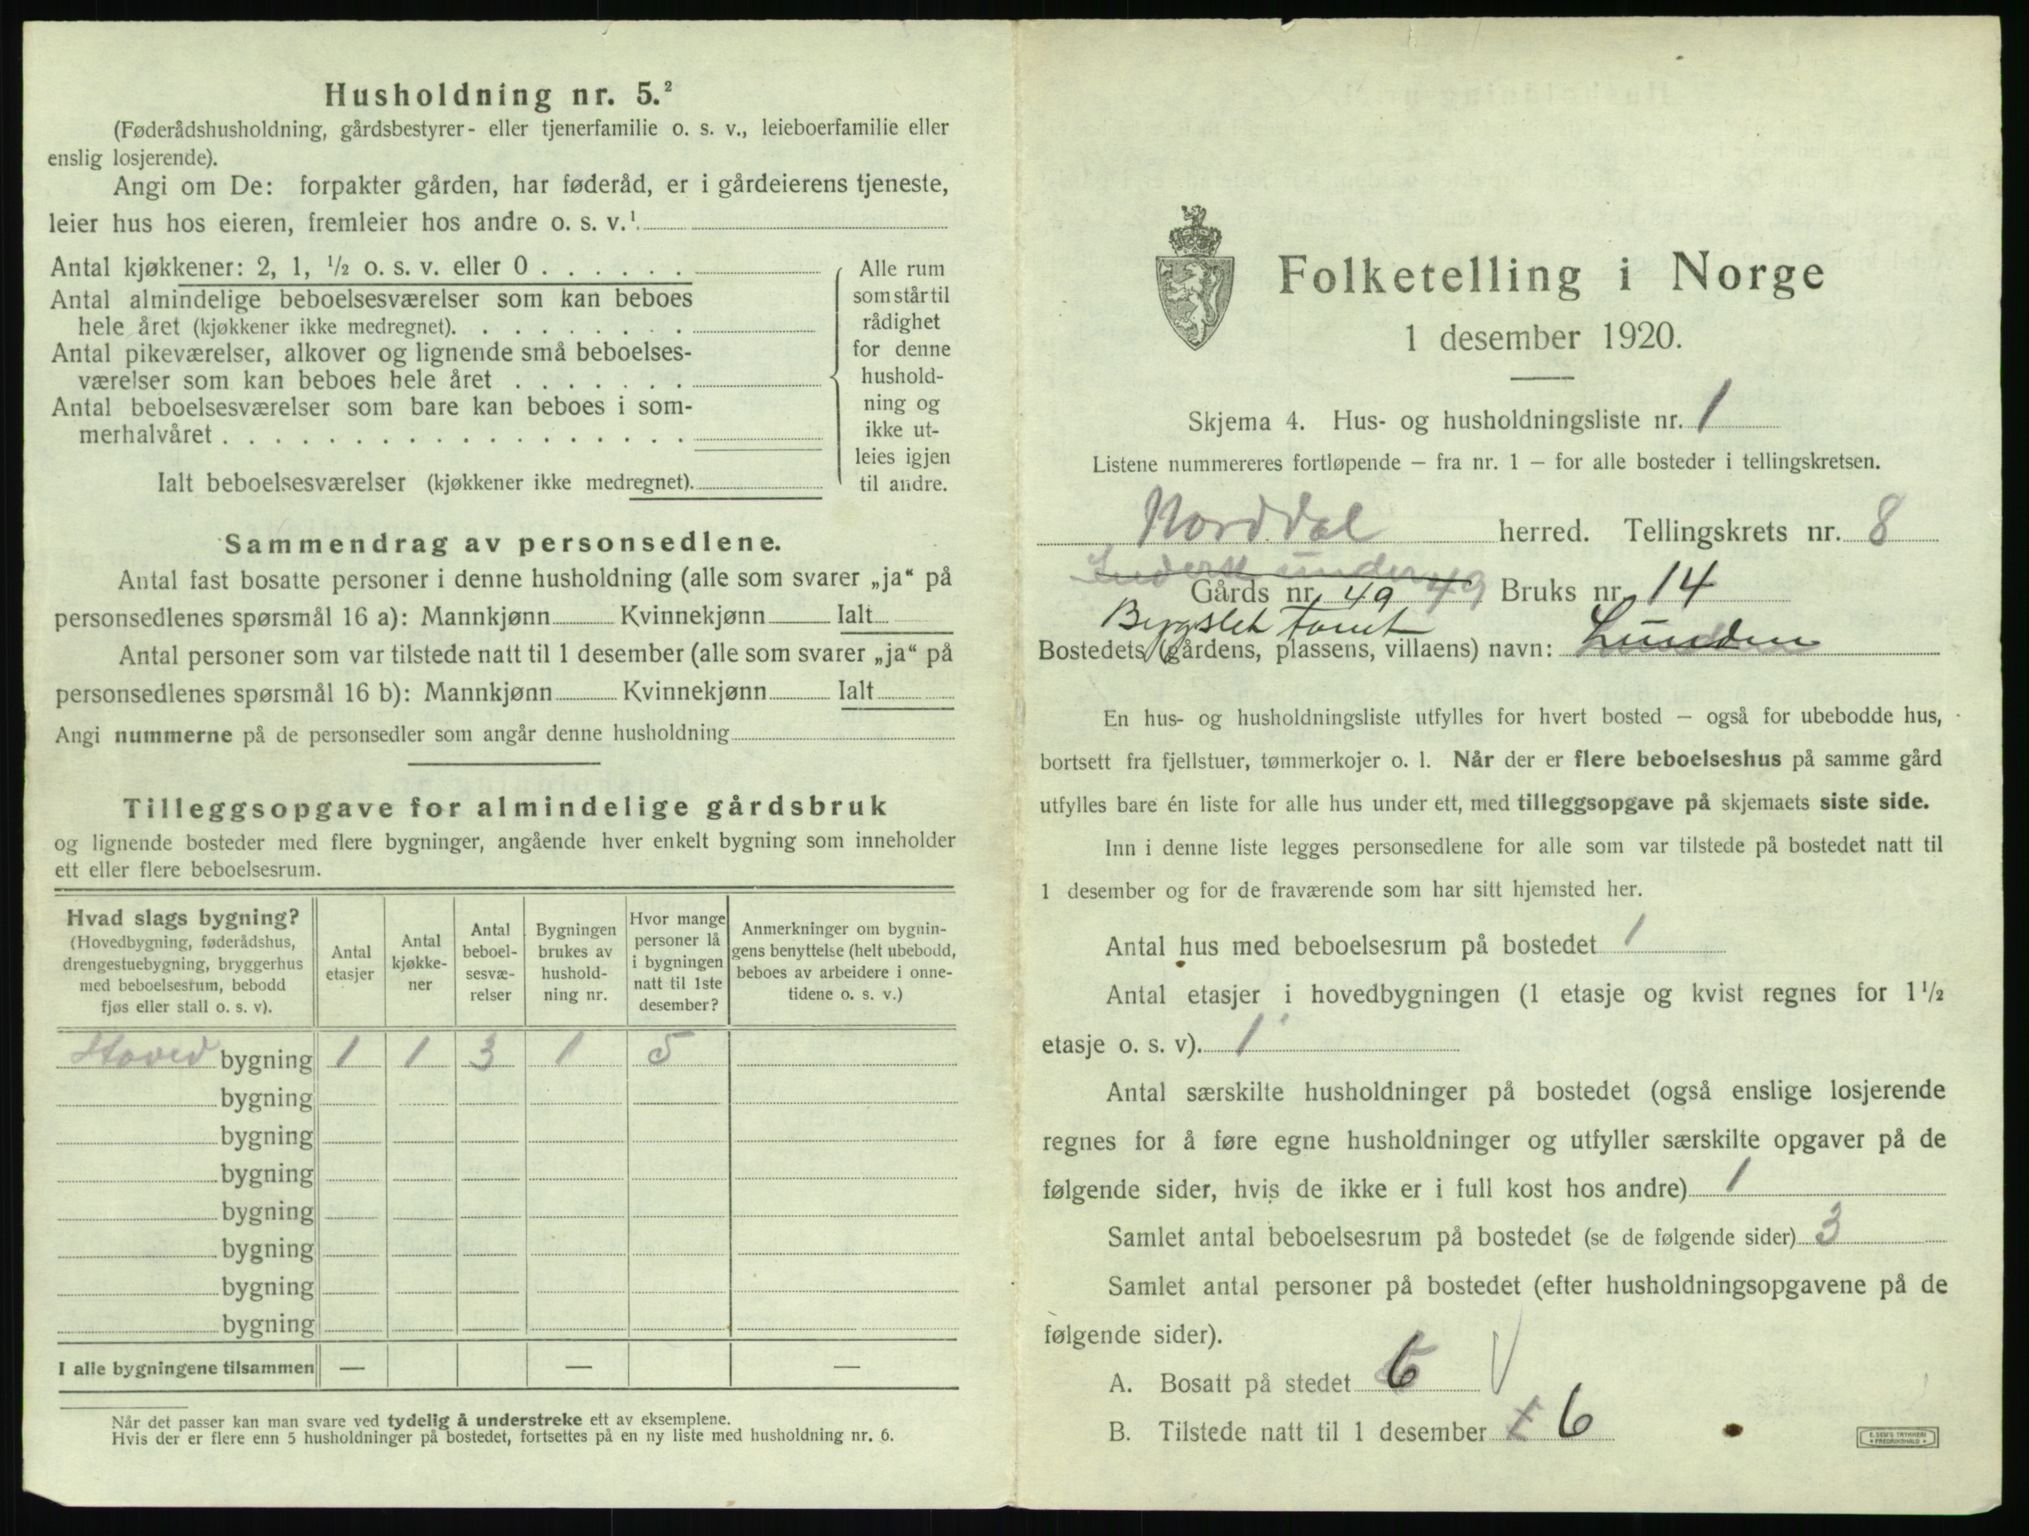 Husholdning nr. 5.²
(Føderådshusholdning, gårdsbestyrer- eller tjenerfamilie o. s. v., leieboerfamilie eller
enslig losjerende).
Angi om De: forpakter gården, har føderåd, er i gårdeierens tjeneste,
leier hus hos eieren, fremleier hos andre o. s. v.¹
Antal kjøkkener: 2, 1, ½ o. s. v. eller 0 . . . . . .
Antal almindelige beboelsesværelser som kan beboes
hele året (kjøkkener ikke medregnet). . . . . . . . .
Antal pikeværelser, alkover og lignende små beboelses-
værelser som kan beboes hele året . . . . . . .
Antal beboelsesværelser som bare kan beboes i som-
merhalvåret . . . . . . . . . . . . . . . . . .
Ialt beboelsesværelser (kjøkkener ikke medregnet).
Alle rum
som står til
rådighet
for denne
hushold-
ning og
ikke ut-
leies igjen
til andre.
Sammendrag av personsedlene.
Antal fast bosatte personer i denne husholdning (alle som svarer „ja“ på
personsedlenes spørsmål 16 a): Mannkjønn Kvinnekjønn Ialt
Antal personer som var tilstede natt til 1 desember (alle som svarer „ja“ på
personsedlenes spørsmål 16 b): Mannkjønn Kvinnekjønn Ialt
Angi nummerne på de personsedler som angår denne husholdning
Tilleggsopgave for almindelige gårdsbruk
og lignende bosteder med flere bygninger, angående hver enkelt bygning som inneholder
ett eller flere beboelsesrum.
Hvad slags bygning?
(Hovedbygning, føderådshus,
drengestuebygning, bryggerhus
med beboelsesrum, bebodd
fjøs eller stall o. s. v).
Antal
etasjer
Antal
kjøkke-
ner
Antal
beboel-
sesvæ-
relser
Bygningen
brukes av
hushold-
ning nr.
Hvor mange
personer lå
i bygningen
natt til 1ste
desember?
Anmerkninger om bygnin-
gens benyttelse (helt ubebodd,
beboes av arbeidere i onne-
tidene o. s. v.)
Hoved bygning 1 1 3 1 5
bygning
bygning
bygning
bygning
bygning
bygning
bygning
I alle bygningene tilsammen — — —
Når det passer kan man svare ved tydelig å understreke ett av eksemplene.
Hvis der er flere enn 5 husholdninger på bostedet, fortsettes på en ny liste med husholdning nr. 6.
Folketelling i Norge
1 desember 1920.
Skjema 4. Hus- og husholdningsliste nr. 1
Listene nummereres fortløpende — fra nr. 1 — for alle bosteder i tellingskretsen.
Norddal herred. Tellingskrets nr. 8
under 49
Gårds nr. 49 Bruks nr. 14
Bygslet tomt
Bostedets (gårdens, plassens, villaens) navn: Lunden
En hus- og husholdningsliste utfylles for hvert bosted — også for ubebodde hus,
bortsett fra fjellstuer, tømmerkojer o. l. Når der er flere beboelseshus på samme gård
utfylles bare én liste for alle hus under ett, med tilleggsopgave på skjemaets siste side.
Inn i denne liste legges personsedlene for alle som var tilstede på bostedet natt til
1 desember og for de fraværende som har sitt hjemsted her.
Antal hus med beboelsesrum på bostedet 1
Antal etasjer i hovedbygningen (1 etasje og kvist regnes for 1½
etasje o. s. v). 1
Antal særskilte husholdninger på bostedet (også enslige losjerende
regnes for å føre egne husholdninger og utfyller særskilte opgaver på de
følgende sider, hvis de ikke er i full kost hos andre) 1
Samlet antal beboelsesrum på bostedet (se de følgende sider) 3
Samlet antal personer på bostedet (efter husholdningsopgavene på de
følgende sider).
A. Bosatt på stedet 6 V
B. Tilstede natt til 1 desember 6
E. SEM'S TRYKKERI
FREDRIKSHALD